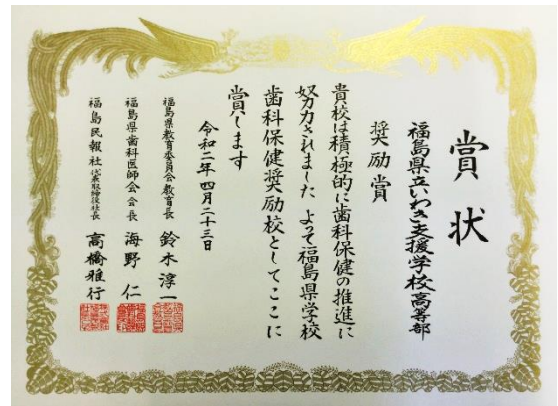 賞状
福島県立いわき支援学校高等部
奨励賞
貴校は積極的に歯科保健の推進に
努力されました よって福島県学校
歯科保健奨励校としてここに
賞します
令和二年四月二十三日
福島県教育委員会教育長 鈴木淳一
福島県歯科医師会会長 海野仁
福島民報社代表取締役社長 高橋雅行